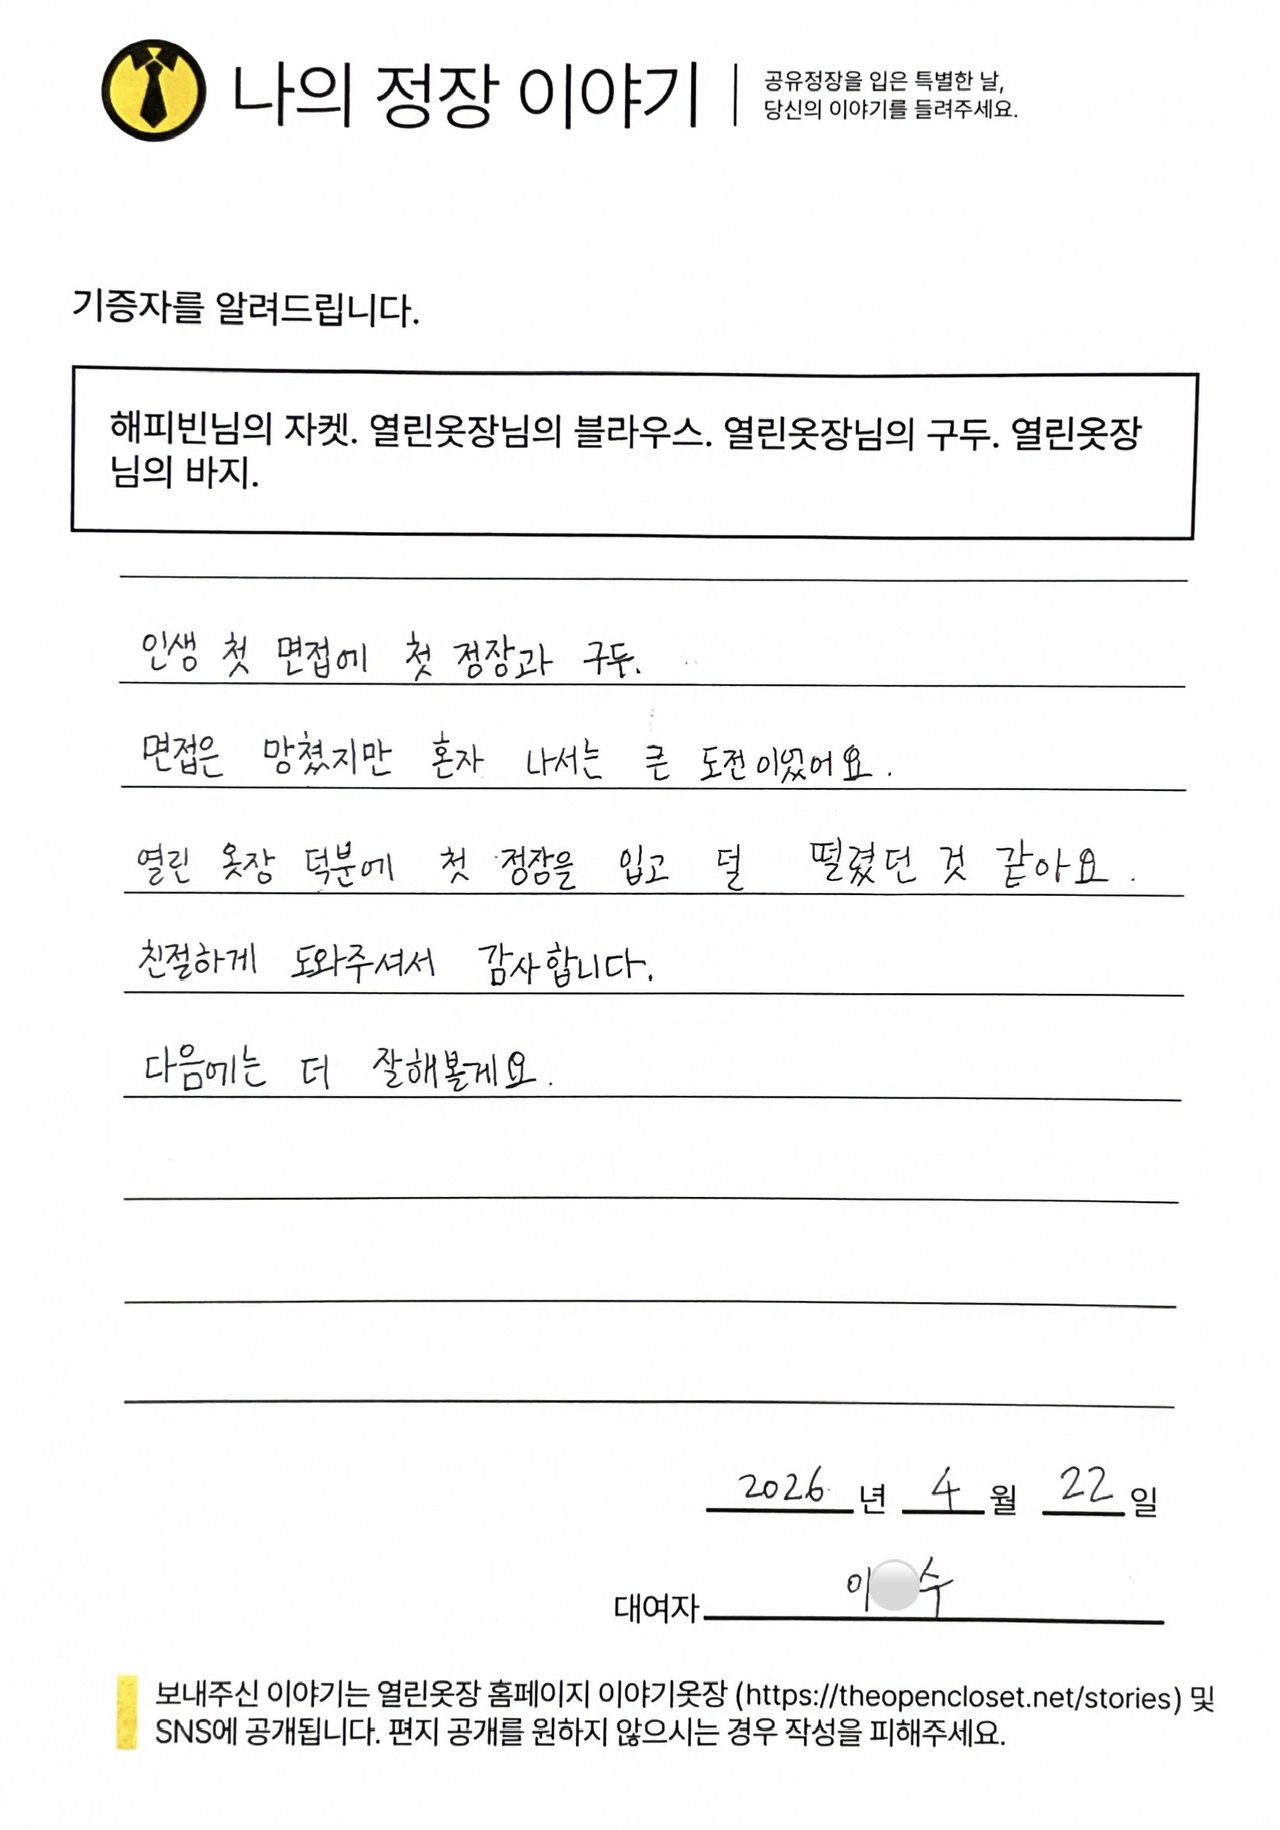 나의 정장 이야기
공유정장을 입은 특별한 날,
당신의 이야기를 들려주세요.
기증자를 알려드립니다.
해피빈님의 자켓. 열린옷장님의 블라우스. 열린옷장님의 구두. 열린옷장
님의 바지.
인생 첫 면접에 첫 정장과 구두.
면접은 망쳤지만 혼자 나서는 큰 도전이었어요.
열린 옷장 덕분에 첫 정장을 입고 덜 떨렸던 것 같아요.
친절하게 도와주셔서 감사합니다.
다음에는 더 잘해볼게요.
2026 년 4 월 22 일
대여자 이 수
보내주신 이야기는 열린옷장 홈페이지 이야기옷장 (https://theopencloset.net/stories) 및
SNS에 공개됩니다. 편지 공개를 원하지 않으시는 경우 작성을 피해주세요.